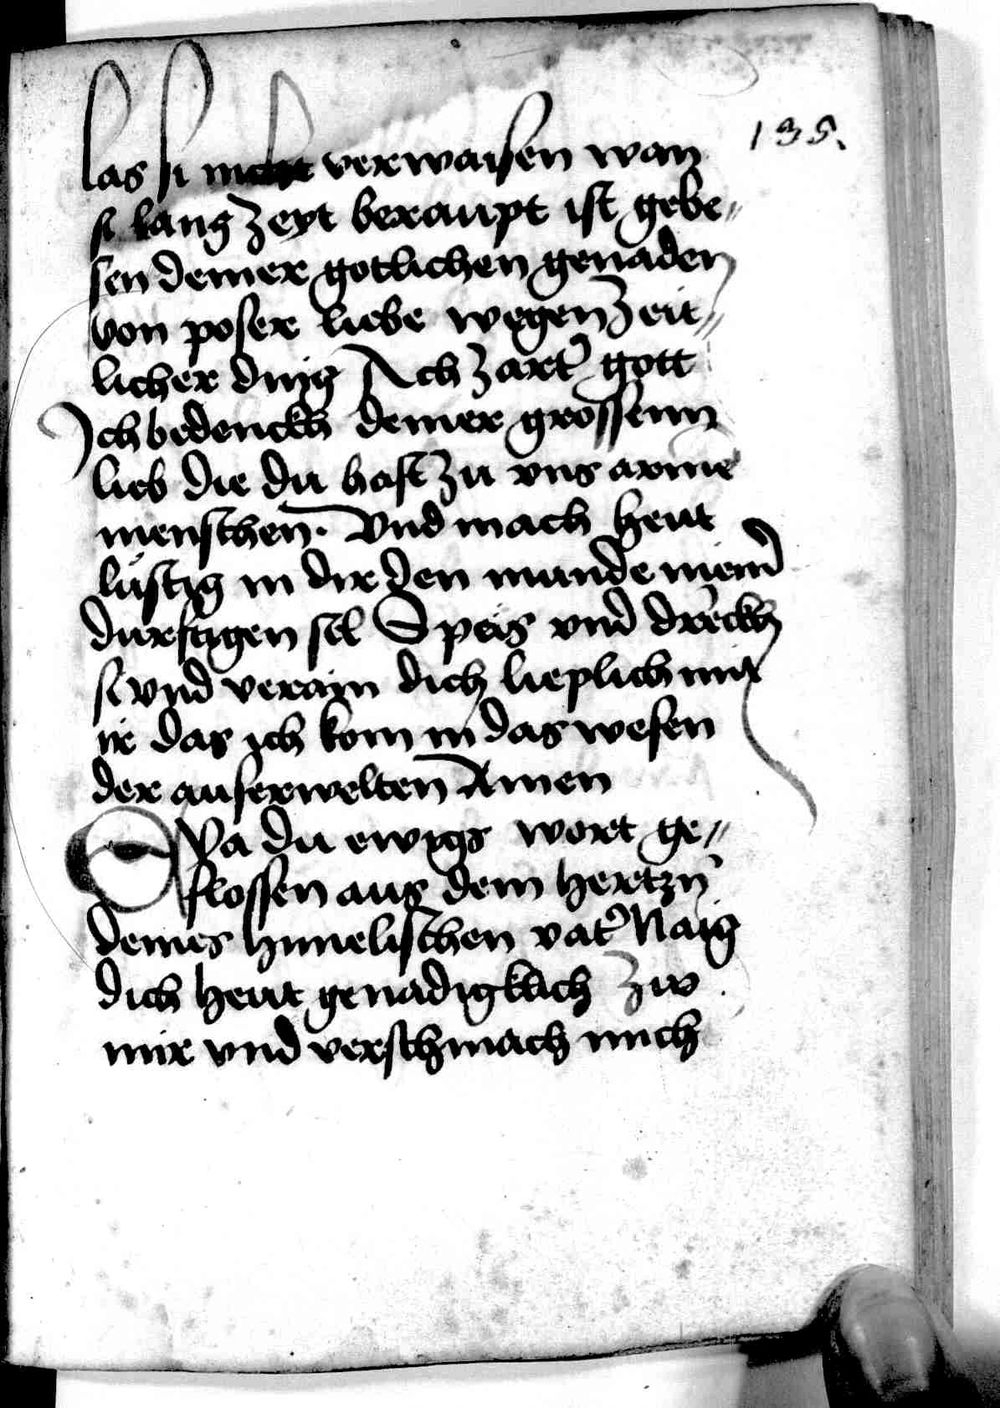 135.
las si nicht verwaisen wan
si lang zeyt beraupt ist gebe„
sen deiner gotlichen genaden
von poser liebe wegen zeit„
licher ding Ach zart' gott
Ich bedenckh deiner grossenn
lieb die du hast zu vns arme
menschen. Vnd mach heut
lustig in dir den munde meind'
durstigen sel Speis vnd drenckh
si vnd verain dich lieplich mit
ir das ich kom in das wesen
der auserwelten Amen
O Va du ewigs wort ge„
flossen aus dem hertzn
deines himelischen vat' Naig
dich heut genadigklich zw
mir vnd verschmach mich